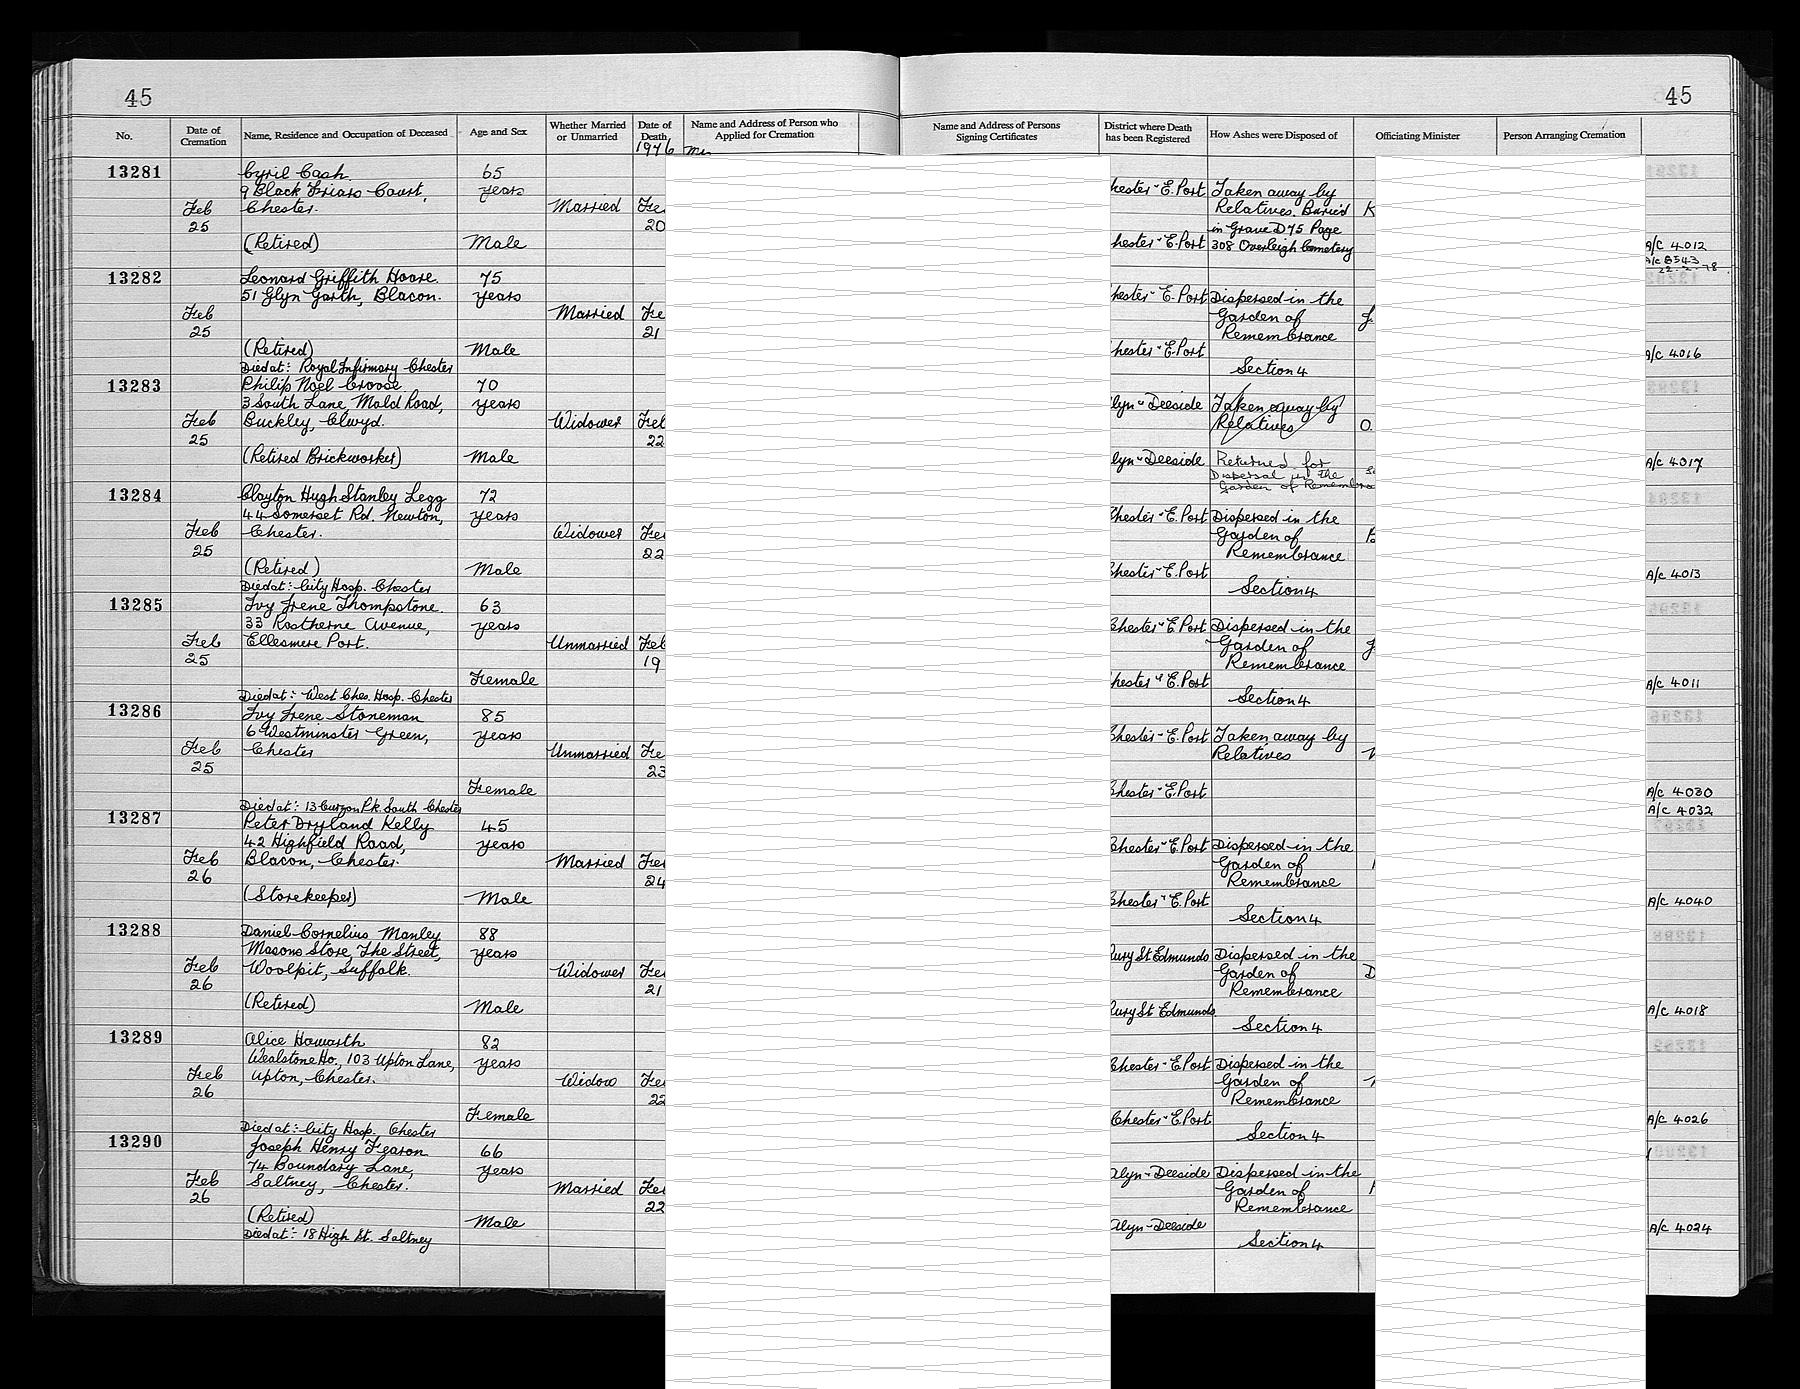 45
45
No.
Date of Cremation
Name, Residence and Occupation of Deceased
Age and Sex
Whether Married or Unmarried
Date of Death
1976
Name and Address of Person who Applied for Cremation
Name and Address of Persons Signing Certificates
District where Death has been Registered
How Ashes were Disposed of
Officiating Minister
Person Arranging Cremation
13281
Feb
25
Cyril Cash.
9 Black Friars Court,
Chester.
(Retired)
65
years
Male
Married
Fe
20
hester - E. Port
hester " E. Port
Taken away by
Relatives. Buried
in Grave D75 Page
308 Overleigh Cemetery
K
A/c 4012
A/c 8543
22.2.78.
13282
Feb
25
Leonard Griffith Hoare.
51 Glyn Garth, Blacon.
(Retired)
Died at: Royal Infirmary Chester
75
years
Male
Married
Fe
21
hester - E. Port
hester " E. Port
Dispersed in the
Garden of
Remembrance
Section 4
A/c 4016
13283
Feb
25
Philip Noel Croose
3 South Lane, Mold Road,
Buckley, Clwyd.
(Retired Brickworker)
70
years
Male
Widower
Feb
22
lyn - Deeside
lyn - Deeside
Taken away by
Relatives
Returned for
Dispersal in the
Garden of Remembra
O.
A/c 4017
13284
Feb
25
Clayton Hugh Stanley Legg
44 Somerset Rd. Newton,
Chester.
(Retired)
Died at:- City Hosp. Chester
72
years
Male
Widower
Fe
22
Chester - E. Port
Chester - E. Port
Dispersed in the
Garden of
Remembrance
Section 4
A/c 4013
13285
Feb
25
Ivy Irene Thompstone.
33 Rostherne Avenue,
Ellesmere Port.
Died at:- West Ches. Hosp. Chester
63
years
Female
Unmarried
Feb
19
Chester - E. Port
hester " E. Port
Dispersed in the
Garden of
Remembrance
Section 4
A/c 4011
13286
Feb
25
Ivy Irene Stoneman
6 Westminster Green,
Chester
Died at:- 13 Curzon Pk. South Chester
85
years
Female
Unmarried
Fe
23
Chester - E. Port
Chester - E. Port
Taken away by
Relatives
A/c 4030
A/c 4032
13287
Feb
26
Peter Dryland Kelly
42 Highfield Road,
Blacon, Chester.
(Storekeeper)
45
years
Male
Married
Fe
24
Chester - E. Port
Chester " E. Port
Dispersed in the
Garden of
Remembrance
Section 4
A/c 4040
13288
Feb
26
Daniel Cornelius Manley
Masons Store, The Street,
Woolpit, Suffolk.
(Retired)
88
years
Male
Widower
Fe
21
Bury St Edmunds
Bury St Edmunds
Dispersed in the
Garden of
Remembrance
Section 4
D
A/c 4018
13289
Feb
26
Alice Howarth
Wealstone Ho, 103 Upton Lane,
Upton, Chester.
Died at:- City Hosp. Chester
82
years
Female
Widow
Fe
22
Chester - E. Port
Chester - E. Port
Dispersed in the
Garden of
Remembrance
Section 4
A/c 4026
13290
Feb
26
Joseph Henry Fearon
74 Boundary Lane,
Saltney, Chester.
(Retired)
Died at:- 18 High St. Saltney
66
years
Male
Married
Fe
22
Alyn - Deeside
Alyn - Deeside
Dispersed in the
Garden of
Remembrance
Section 4
A/c 4024